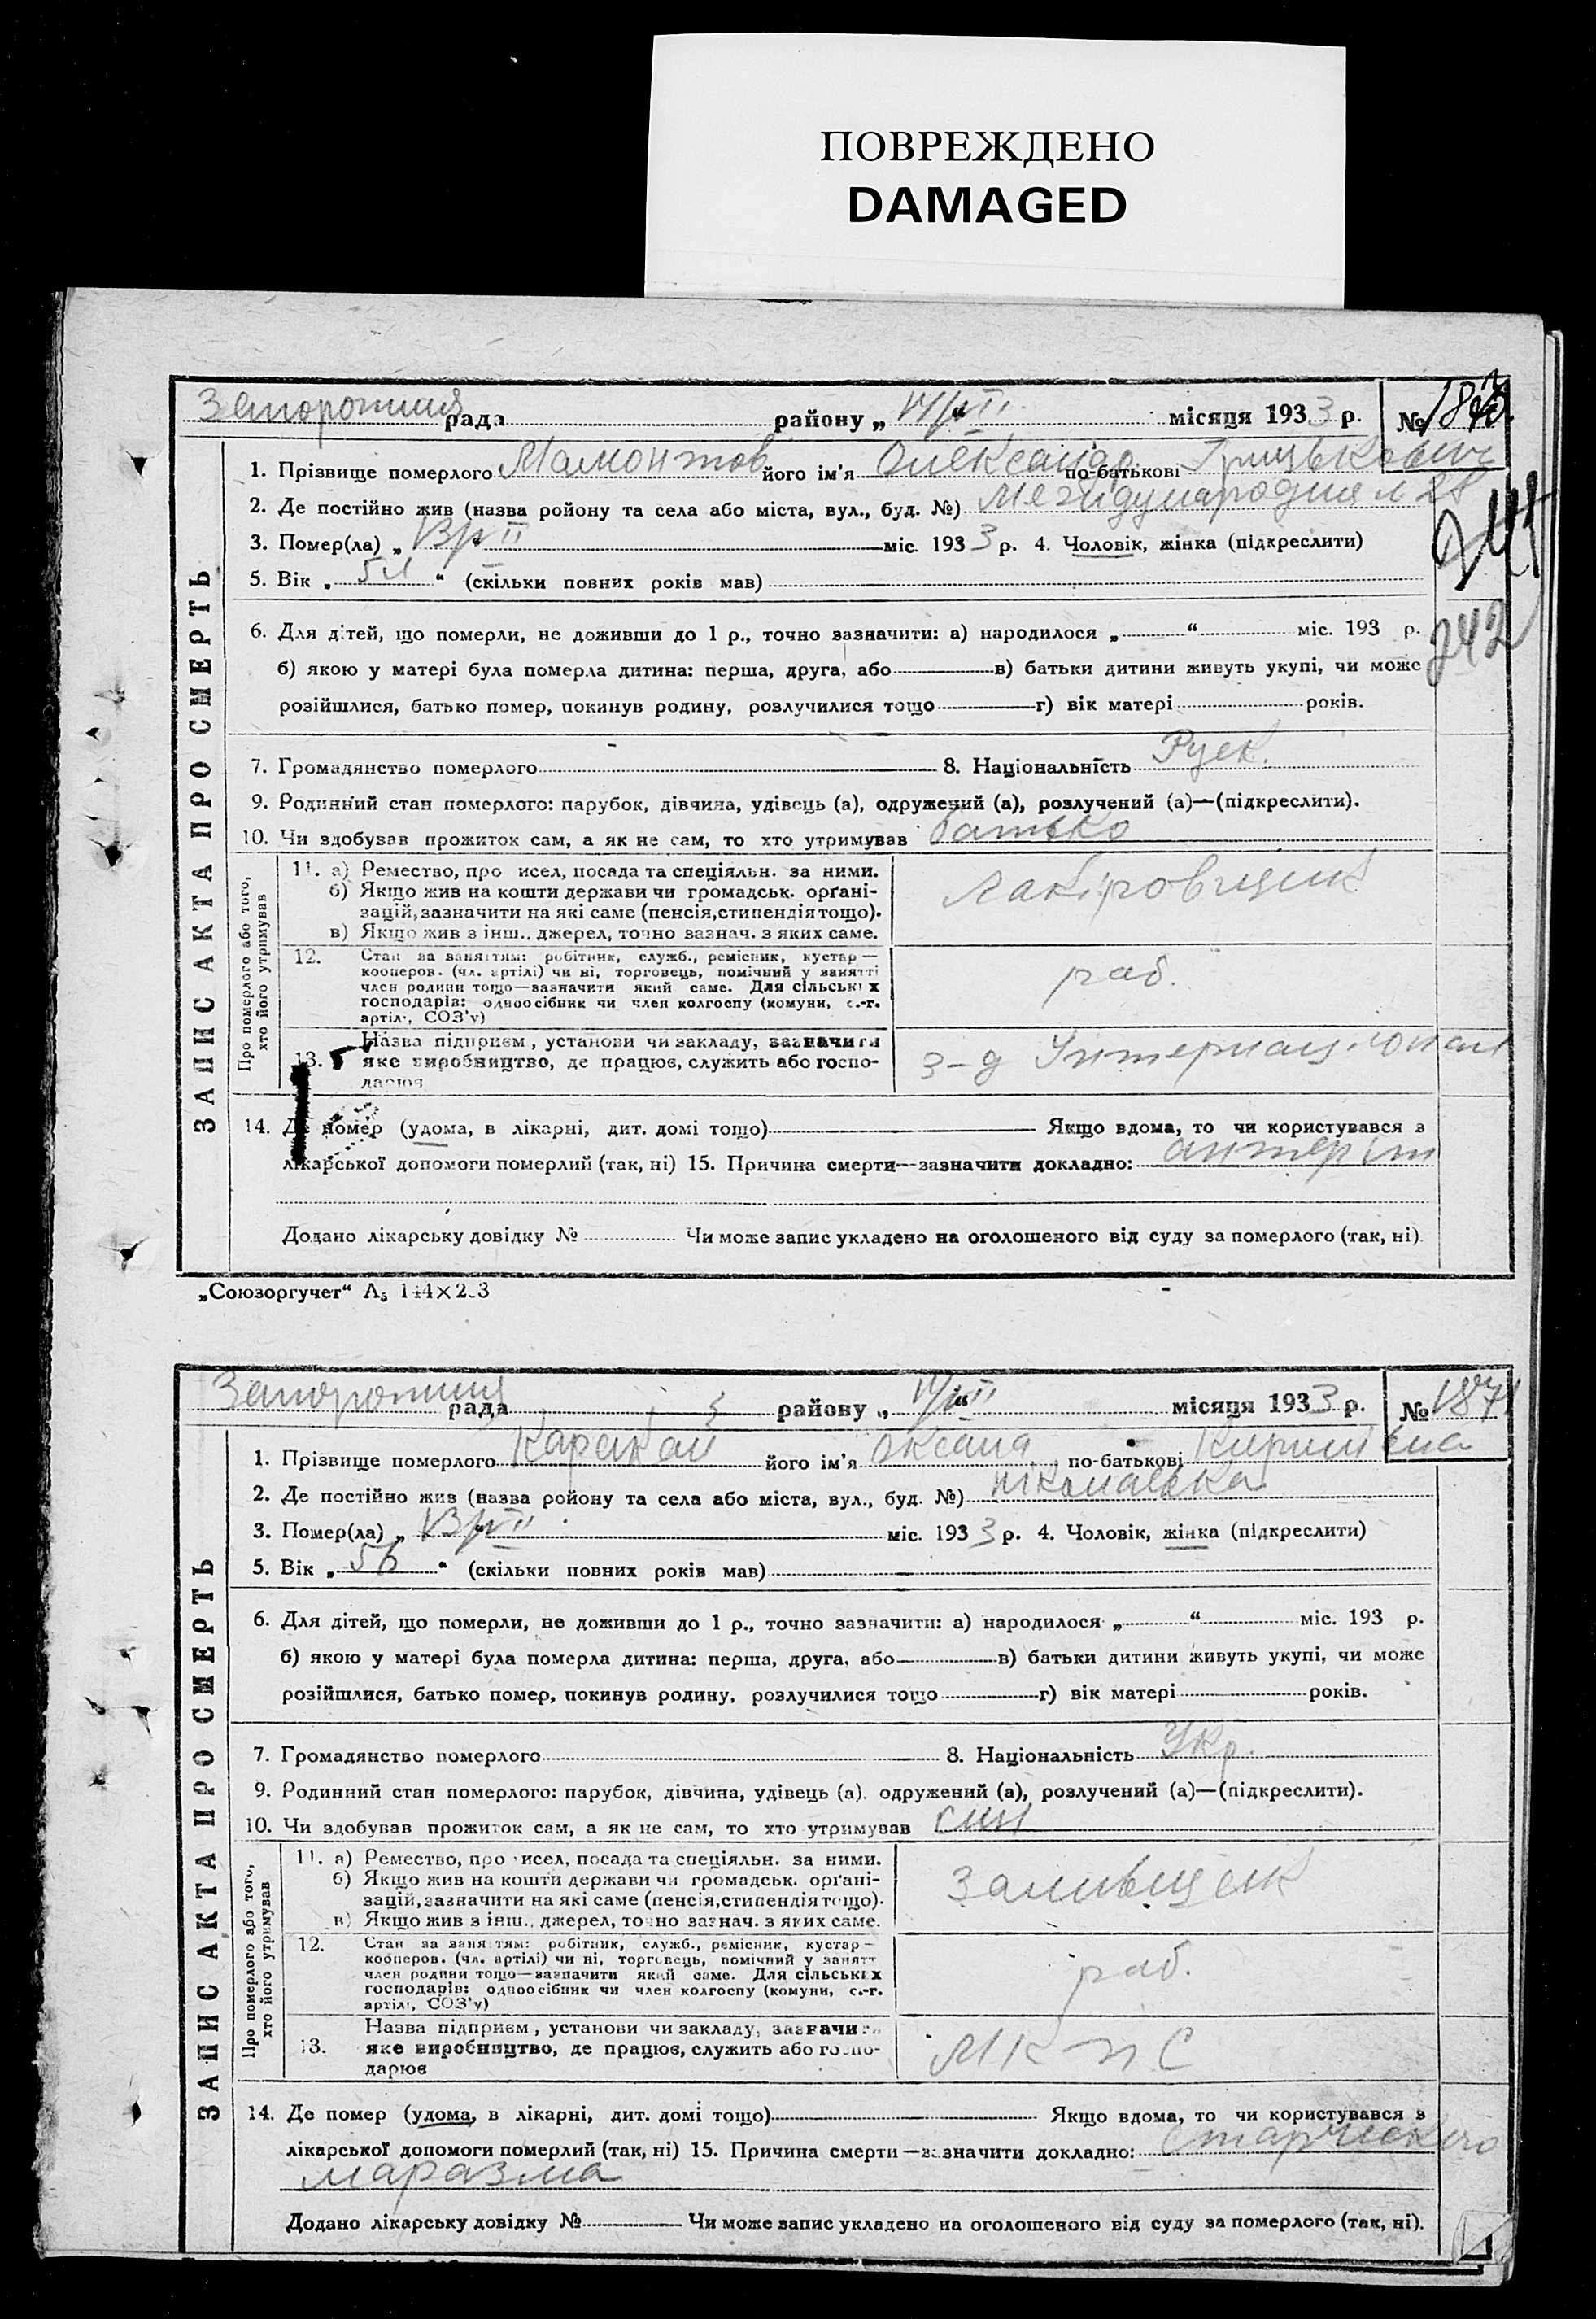 ПОВРЕЖДЕНО
DAMAGED
Запорожская рада району „ “ місяця 1933 р. №
ЗАПИС АКТА ПРО СМЕРТЬ
1. Прізвище померлого Мамонтов його ім’я Олександр по-батькові Грицькович
2. Де постійно жив (назва ройону та села або міста, вул., буд. №) 28
3. Помер(ла) „ “ міс. 1933 р. 4. Чоловік, жінка (підкреслити)
5. Вік „ “ (скільки повних років мав)
6. Для дітей, що померли, не доживши до 1 р., точно зазначити: а) народилося „ “ міс. 193 р.
242
б) якою у матері була померла дитина: перша, друга, або в) батьки дитини живуть укупі, чи може
розійшлися, батько помер, покинув родину, розлучилися тощо г) вік матері років.
7. Громадянство померлого 8. Національність Руск.
9. Родинний стан померлого: парубок, дівчина, удівець (а), одружений (а), розлучений (а)—(підкреслити).
10. Чи здобував прожиток сам, а як не сам, то хто утримував батько
Про померлого або того, хто його утримував
11. а) Ремество, про исел, посада та спеціяльн. за ними.
б) Якщо жив на кошти держави чи громадськ. орґані-
зацій, зазначити на які саме (пенсія, стипендія тощо).
в) Якщо жив з інш., джерел, точно зазнач. з яких саме.
лакіровщик
12. Стан за заняттям: робітник, служб., ремісник, кустар —
кооперов. (чл. артілі) чи ні, торговець, помічний у занятті
член родини тощо—зазначити який саме. Для сільських
господарів: одноосібник чи член колгоспу (комуни, с.-г.
артілі, СОЗ’у)
раб.
13. Назва підприєм, установи чи закладу, зазначити
яке виробництво, де працює, служить або госпо-
дарює
з-д Интернационал
14. Де помер (удома, в лікарні, дит. домі тощо) Якщо вдома, то чи користувався з
лікарської допомоги померлий (так, ні) 15. Причина смерти—зазначити докладно: антеріт
Додано лікарську довідку № Чи може запис укладено на оголошеного від суду за померлого (так, ні).
„Союзоргучет“ А₅
Запорожская рада району „ “ місяця 1933 р. № 1871
ЗАПИС АКТА ПРО СМЕРТЬ
1. Прізвище померлого його ім’я Оксана по-батькові
2. Де постійно жив (назва ройону та села або міста, вул., буд. №)
3. Помер(ла) „ “ міс. 1933 р. 4. Чоловік, жінка (підкреслити)
5. Вік „ 56 “ (скільки повних років мав)
6. Для дітей, що померли, не доживши до 1 р., точно зазначити: а) народилося „ “ міс. 193 р.
б) якою у матері була померла дитина: перша, друга, або в) батьки дитини живуть укупі, чи може
розійшлися, батько помер, покинув родину, розлучилися тощо г) вік матері років.
7. Громадянство померлого 8. Національність Укр.
9. Родинний стан померлого: парубок, дівчина, удівець (а), одружений (а), розлучений (а)—(підкреслити).
10. Чи здобував прожиток сам, а як не сам, то хто утримував син
Про померлого або того, хто його утримував
11. а) Ремество, про исел, посада та спеціяльн. за ними.
б) Якщо жив на кошти держави чи громадськ. орґані-
зацій, зазначити на які саме (пенсія, стипендія тощо).
в) Якщо жив з інш., джерел, точно зазнач. з яких саме.
12. Стан за заняттям: робітник, служб., ремісник, кустар —
кооперов. (чл. артілі) чи ні, торговець, помічний у занятт
член родини тощо—зазначити який саме. Для сільських
господарів: одноосібник чи член колгоспу (комуни, с.-г.
артілі, СОЗ’у)
раб.
13. Назва підприєм, установи чи закладу, зазначити
яке виробництво, де працює, служить або госпо-
дарює
14. Де помер (удома, в лікарні, дит. домі тощо) Якщо вдома, то чи користувався з
лікарської допомоги померлий (так, ні) 15. Причина смерти—зазначити докладно:
маразма
Додано лікарську довідку № Чи може запис укладено на оголошеного від суду за померлого (так, ні).